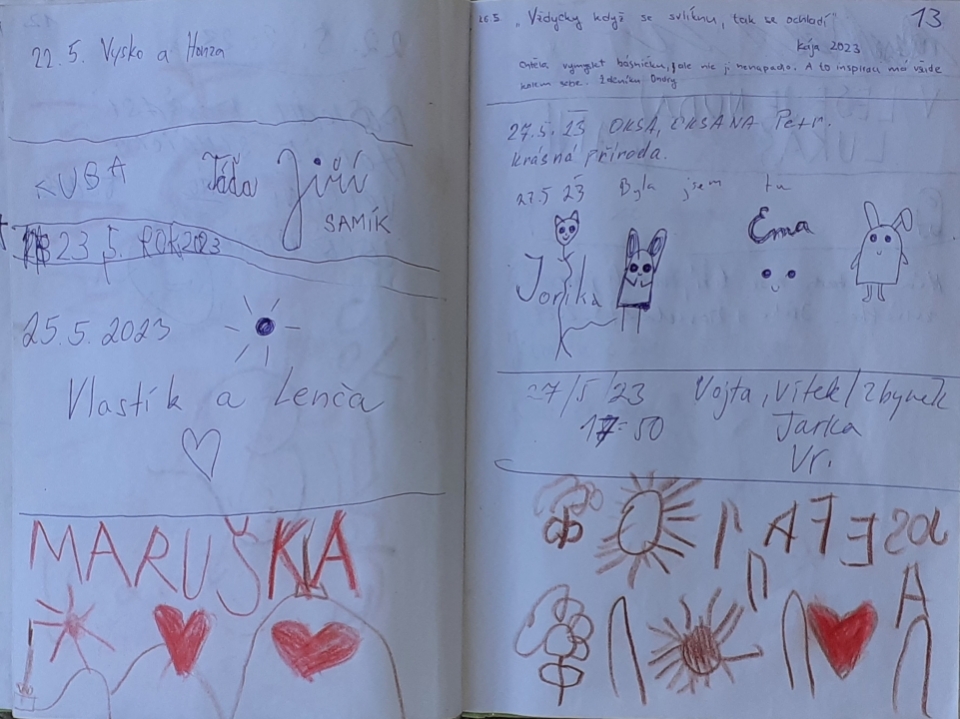 22. 5. Vysko a Honza
KUBA Táďa Jiří
SAMÍK
23 5. ROK 2023
25.5.2023
Vlastík a Lenča
MARUŠKA
13
26.5. „Vždycky když se svlíknu, tak se ochladí"
Kája 2023
vymyslet básničku, ale nic ji nenapadlo. A to inspiraci má všude
kolem sebe.
27.5.23 OKSA, OKSANA Petr.
krásná příroda.
27.5 23 Byla jsem tu
Ema
Jonika
27/5/23 Vojta, Vítek / Zbyněk
17:50 Jarka
Vr.